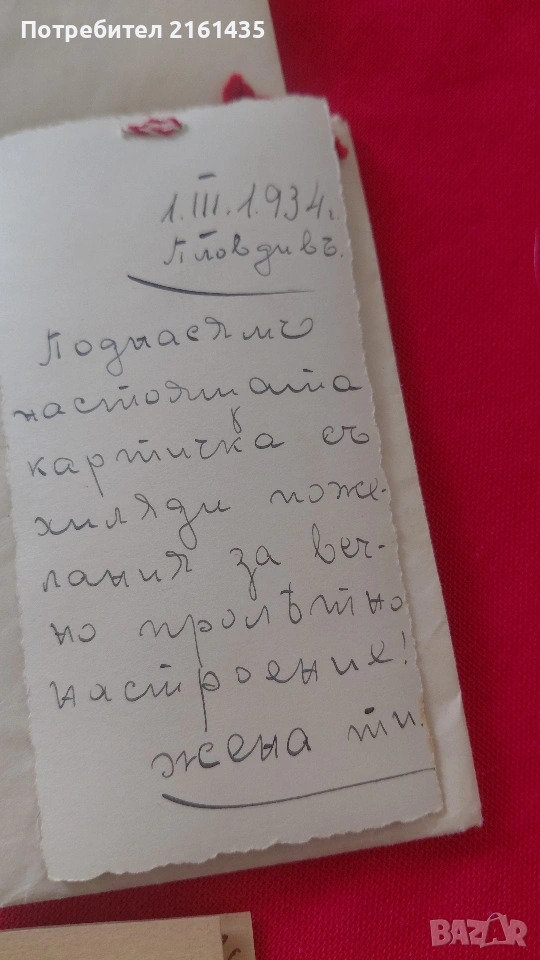 Потребител 2161435
1.III.1934г.
Пловдивъ.
Поднасямъ
настоящата
картичка съ
хиляди поже-
лания за веч-
но пролѣтно
настроение!
жена ти.
BAZAR